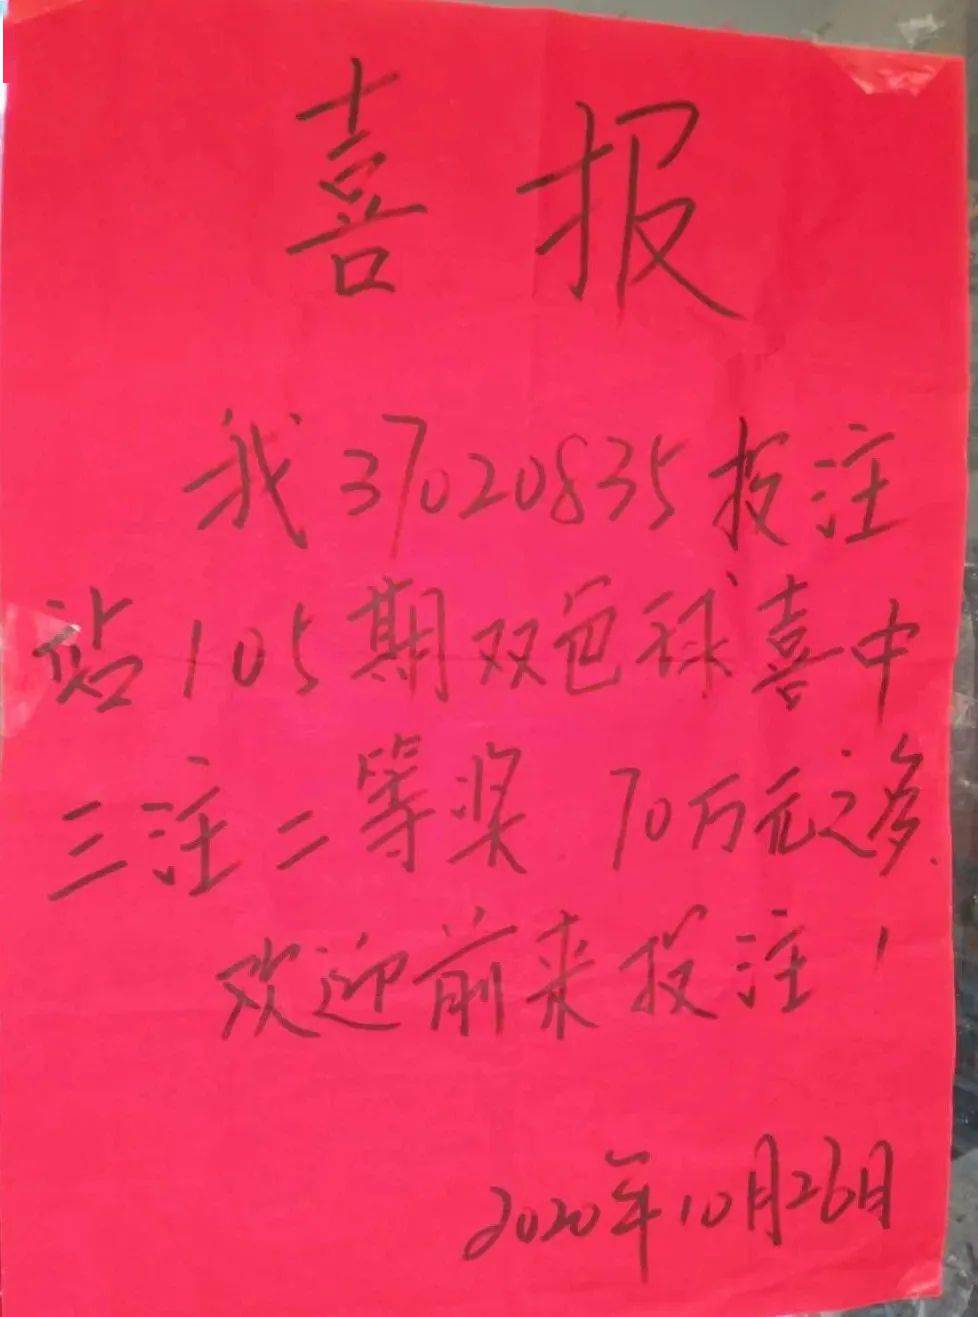 喜报
我37020835投注
站105期双色球喜中
三注二等奖 70万元之多.
欢迎前来投注！
2020年10月26日